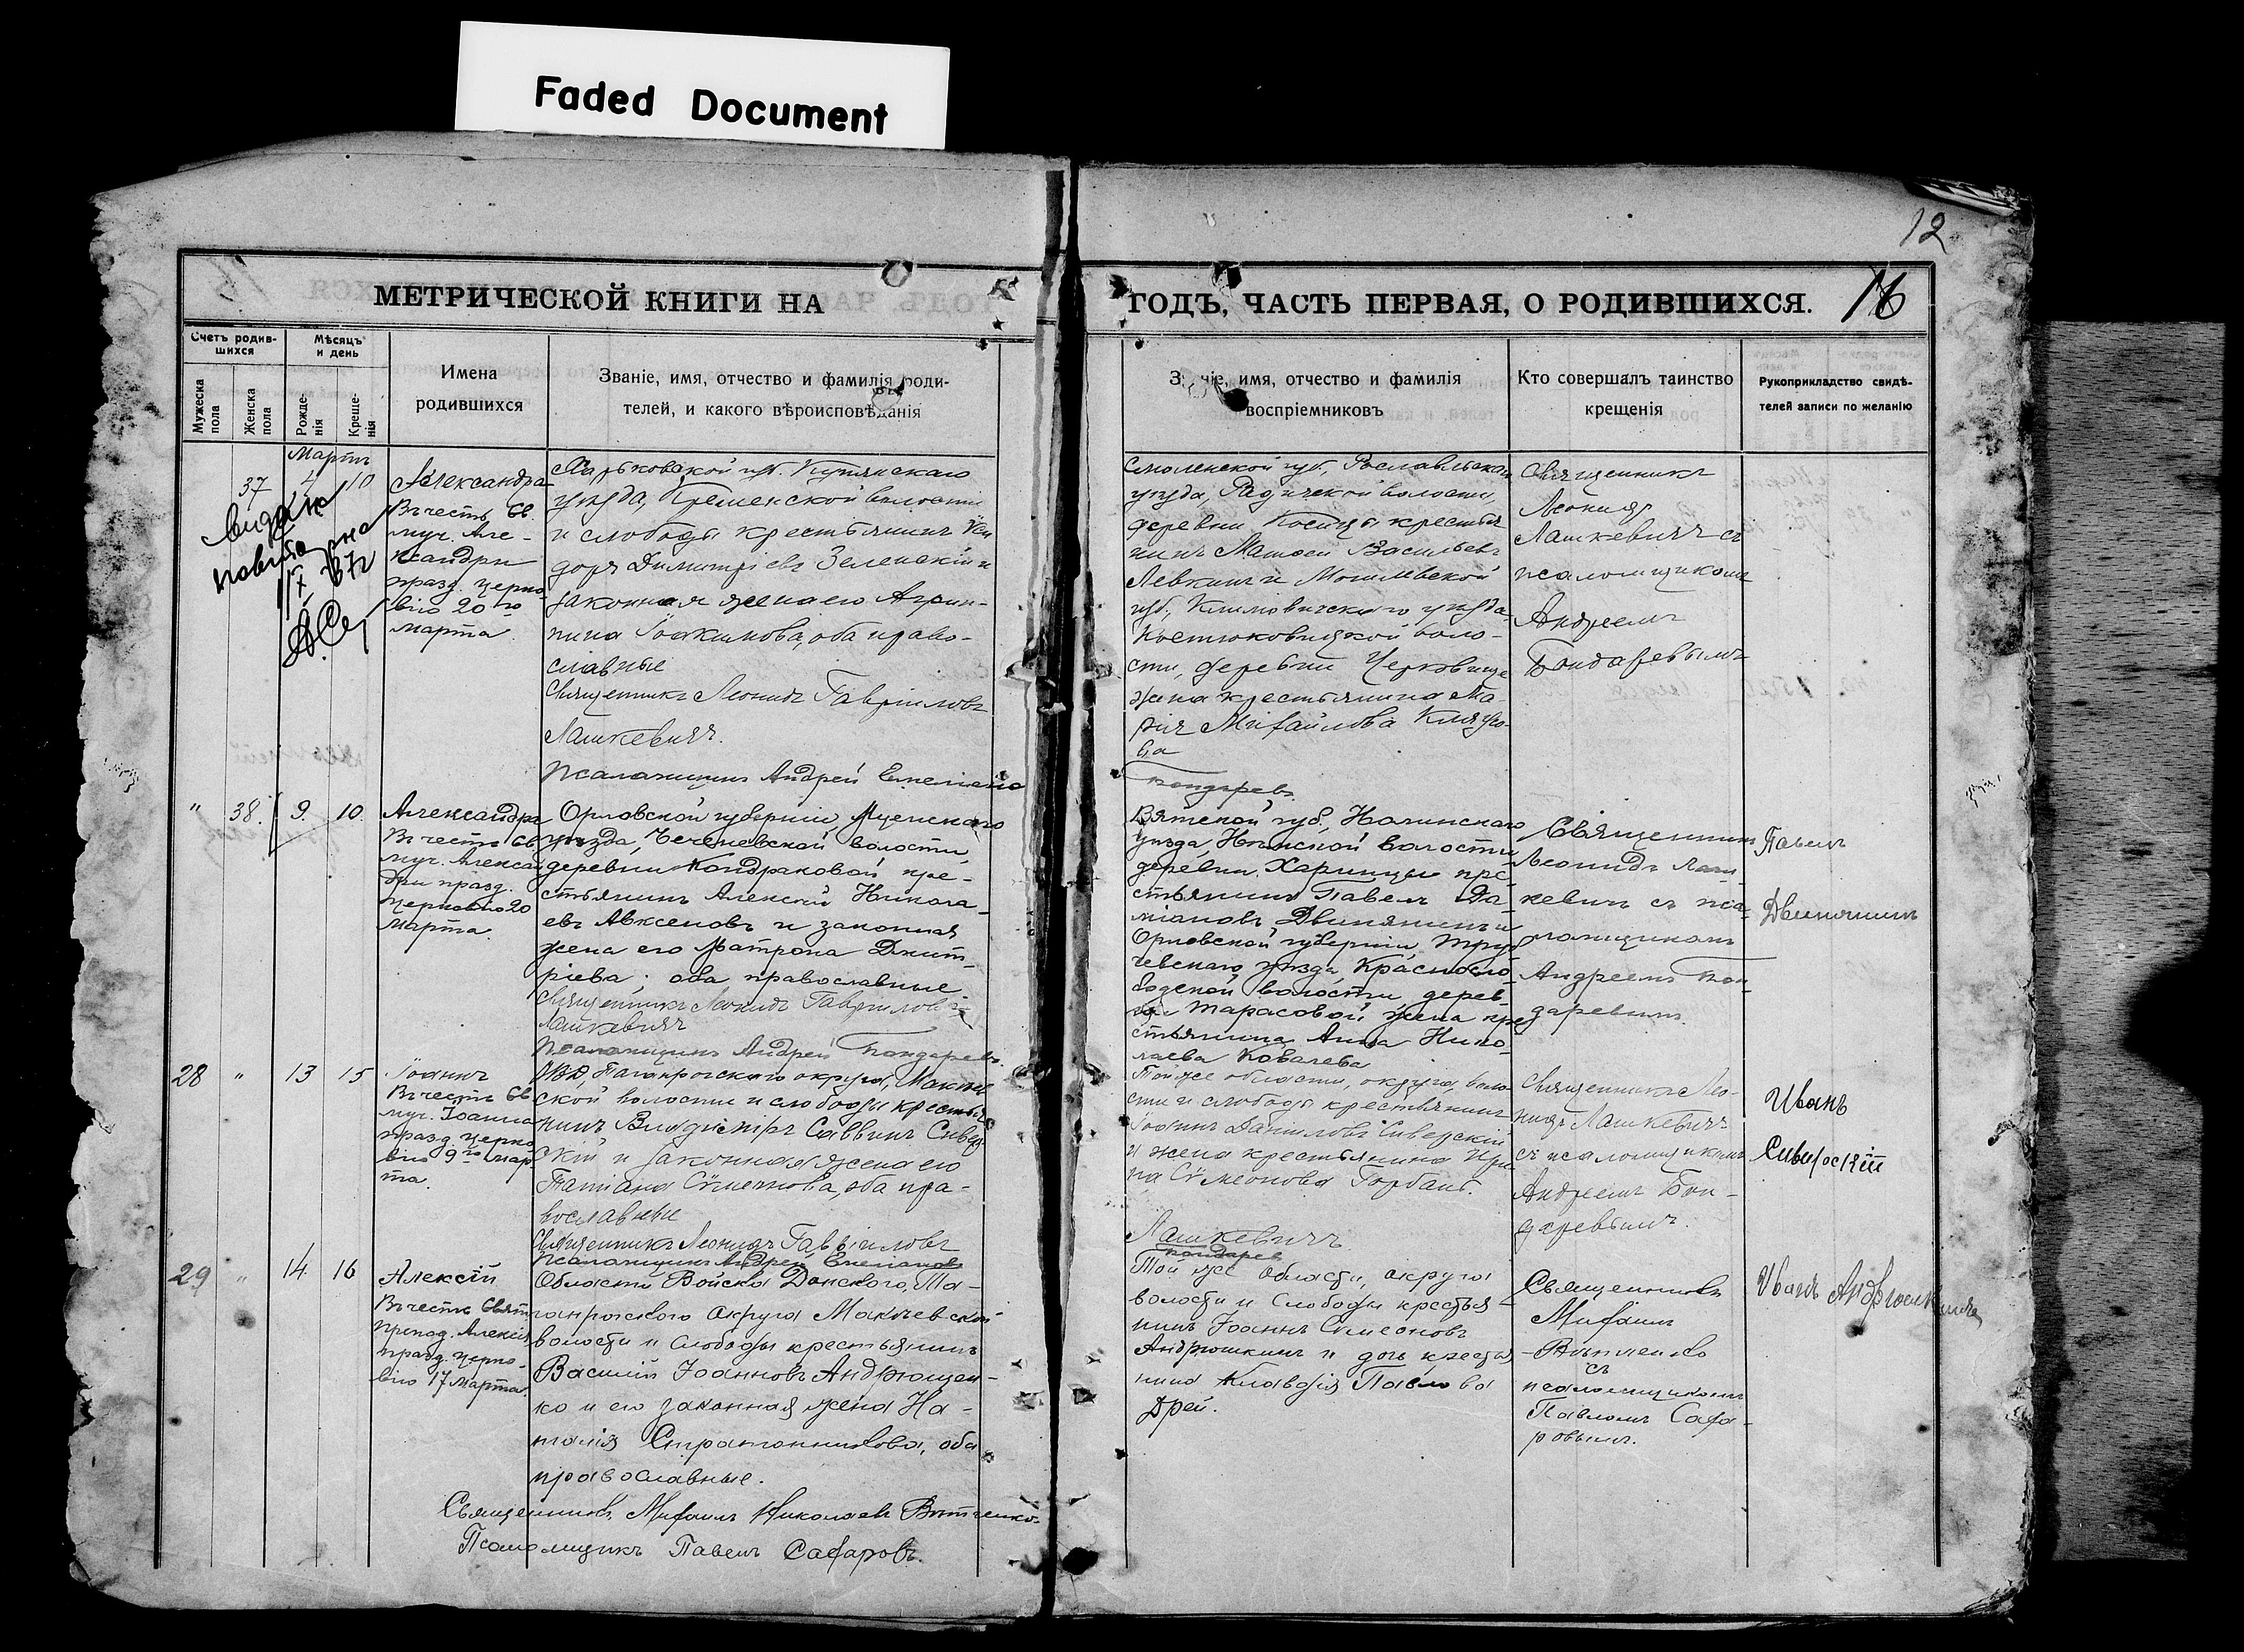 Faded Document
12
МЕТРИЧЕСКОЙ КНИГИ НА
ГОДЪ, ЧАСТЬ ПЕРВАЯ, О РОДИВШИХСЯ.
16
Счетъ родив-
шихся
Мѣсяцъ
и день
Мужеска
пола
Женска
пола
Рожде-
нія
Креще-
нія
Имена
родившихся
Званіе, имя, отчество и фамилія роди-
телей, и какого вѣроисповѣданія
имя, отчество и фамилія
воспріемниковъ
Кто совершалъ таинство
крещенія
Рукоприкладство свидѣ-
телей записи по желанію
Мартъ
37
10
Александра
Въ честь Св.
муч. Але-
ксандры
празд. церко
вію 20го
марта.
Харьковской губ. Купянскаго
уѣзда, Кременской волости
и слободы крестьянинъ Иси
доръ Димитріевъ Зеленскій и
законная жена его Агрип-
пина Іоакимова, оба право-
славные
Священникъ Леонидъ Гавріиловъ
Лашкевичъ.
Псаломщикъ Андрей
Смоленской губ., Рославльскаго
уѣзда, волости,
деревни Косицы крестья
нинъ Матѳей Васильевъ
Левкинъ и Могилевской
губ., Климовичскаго уѣзда
Костюковицкой воло-
сти, деревни
жена крестьянина Ма-
рія Михайлова
ва
Бондаревъ.
Священникъ
Леонидъ
Лашкевичъ съ
псаломщикомъ
Андреемъ
Бондаревымъ
" 38. 9. 10.
Александра
Въ честь Св.
муч. Алексан
дры празд.
церковію 20
марта.
Орловской губерніи, Мценскаго
уѣзда, волости,
деревни Кондраковой кре-
стьянинъ Алексѣй Никола-
евъ Авксеновъ и законная
жена его Матрона Димит-
ріева; оба православные
Священникъ Леонидъ Гавріиловъ
Лашкевичъ
Псаломщикъ Андрей Бондаревъ
Вятской губ., Нолинскаго
уѣзда, волости
деревни Харинцы кре-
стьянинъ Павелъ Да-
міановъ Двинянинъ и
Орловской губерніи, Труб
чевскаго уѣзда, Краснослo
бодской волости, дерев-
ни Тарасовой жена кре
стьянина Анна Нико-
лаева Ковалева
Священникъ
Леонидъ Лаш-
кевичъ съ пса-
ломщикомъ
Андреемъ Бон-
даревымъ.
Павелъ
Двинянинъ
28 " 13 15
Іоаннъ
Въ честь Св
муч. Іоанна
празд. церко
вію 9го мар
та.
ОВД, Таганрогскаго округа, Макѣев
ской волости и слободы крестья
нинъ Владиміръ Саввинъ Сивер
скій и законная жена его
Татіана Сѵмеонова, оба пра-
вославные
Священникъ Леонидъ Гавріиловъ
Псаломщикъ Андрей Емеліановъ
Той же области, округа, воло
сти и слободы крестьянинъ
Іоаннъ Даніиловъ Сиверскій
и жена крестьянина Ири
на Сѵмеонова Горбань.
Лашкевичъ
Бондарев
Священникъ Лео-
нидъ Лашкевичъ
съ псаломщикомъ
Андреемъ Бон-
даревымъ.
Иванъ
Сиверскій
29 " 14 16
Алексій
Въ честь Свят
препод. Алексія
празд. церко-
вію 17 марта.
Области Войска Донского, Та-
ганрогского округа Макѣевской
волости и слободы крестьянинъ
Василій Іоанновъ Андрющен-
ко и его законная жена На-
талія Стратониковa, оба
православные.
Священникъ Михаилъ Николаевъ
Псаломщикъ Павелъ Сафаровъ.
Той же области, округа
волости и слободы крестья-
нинъ Іоаннъ Сѵмеоновъ
Андрюшкинъ и дочь крестья
нина Клавдія Павлова
Дрей.
Священникъ
Михаилъ
съ
псаломщикомъ
Павломъ Сафа-
ровымъ.
Иванъ